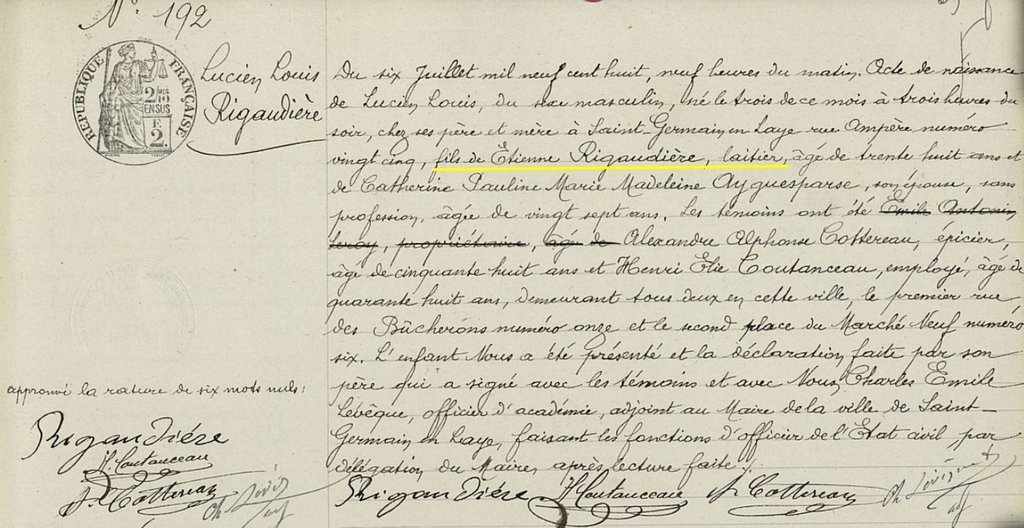 N° 192
RÉPUBLIQUE FRANÇAISE
2/10 EN SUS
F.
2
Lucien Louis
Rigaudière
Du six Juillet mil neuf cent huit, neuf heures du matin, Acte de naissance
de Lucien Louis, du sexe masculin, né le trois de ce mois à trois heures du
soir, chez ses père et mère à Saint-Germain en Laye rue Ampère numéro
vingt cinq, fils de Etienne Rigaudière, laitier, âgé de trente huit ans et
de Catherine Pauline Marie Madeleine Ayguesparse, son épouse, sans
profession, âgée de vingt sept ans. Les témoins ont été Emile Antonin
Leroy, propriétaire, âgé de Alexandre Alphonse Cottereau, épicier,
âgé de cinquante huit ans et Henri Elie Coutanceau, employé, âgé de
quarante huit ans, demeurant tous deux en cette ville, le premier rue
des Bûcherons numéro onze et le second place du Marché Neuf numéro
six. L'enfant Nous a été présenté et la déclaration faite par son
père qui a signé avec les témoins et avec Nous, Charles Emile
Lévêque, officier d'académie, adjoint au Maire de la ville de Saint-
Germain en Laye, faisant les fonctions d'officier de l'Etat civil par
délégation du Maire, après lecture faite.
approuvé la rature de six mots nuls:
Rigaudiére
H. Coutanceau
A. Cottereau
Ch Lévêque
adj
Rigaudiére H. Coutanceau A. Cottereau Ch Lévêque
adj